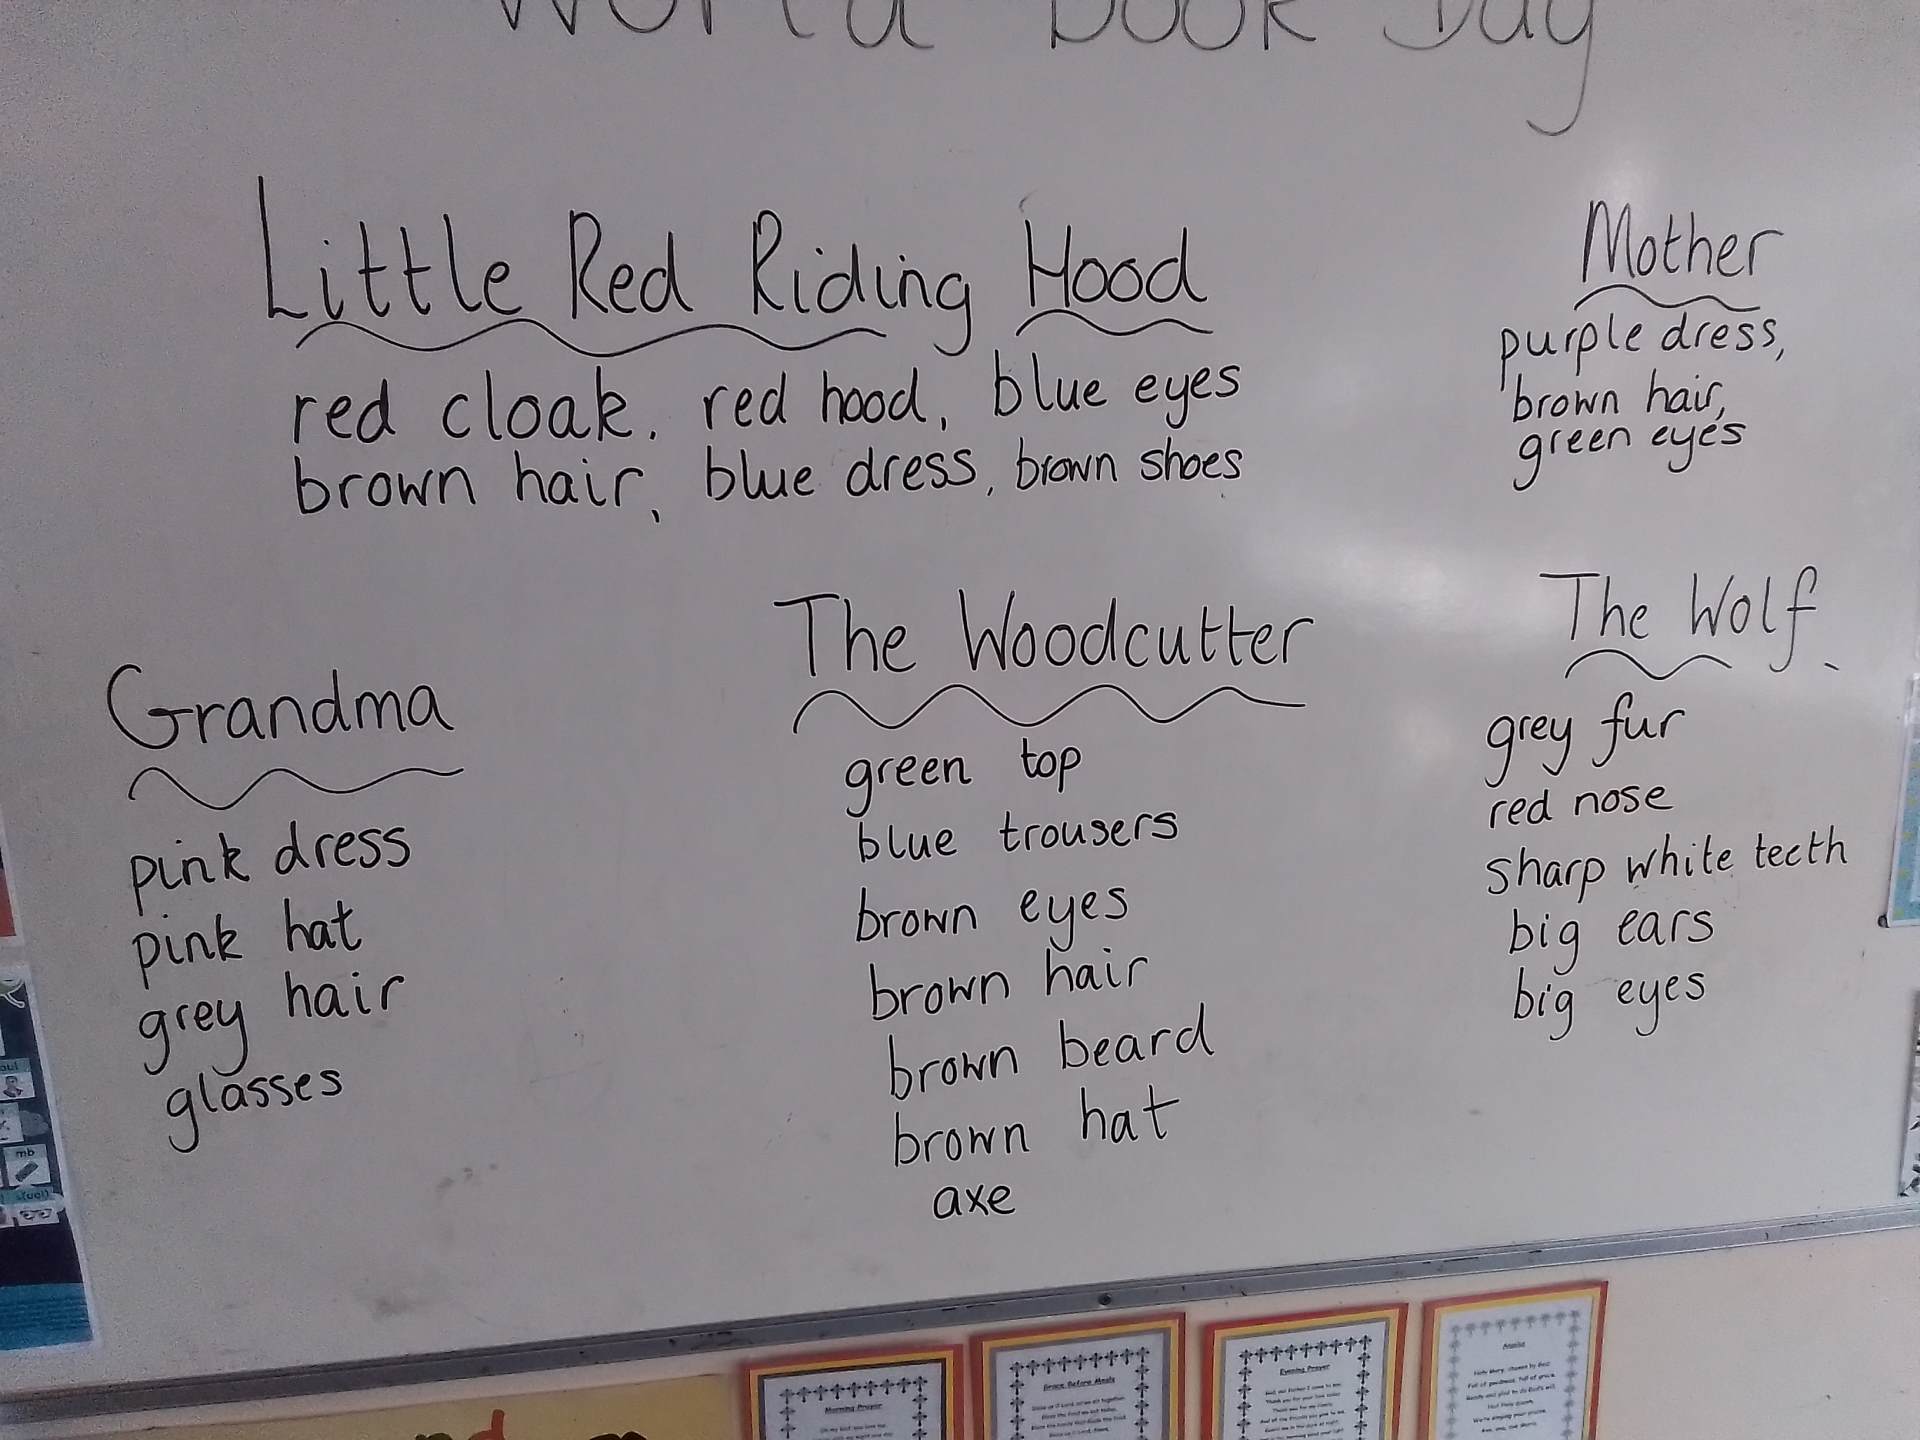 World Book Day
Little Red Riding Hood
red cloak, red hood, blue eyes
brown hair, blue dress, brown shoes
Mother
purple dress,
brown hair,
green eyes
Grandma
pink dress
pink hat
grey hair
glasses
The Woodcutter
green top
blue trousers
brown eyes
brown hair
brown beard
brown hat
axe
The Wolf
grey fur
red nose
sharp white teeth
big ears
big eyes
mb
Morning Prayer
Grace Before Meals
Evening Prayer